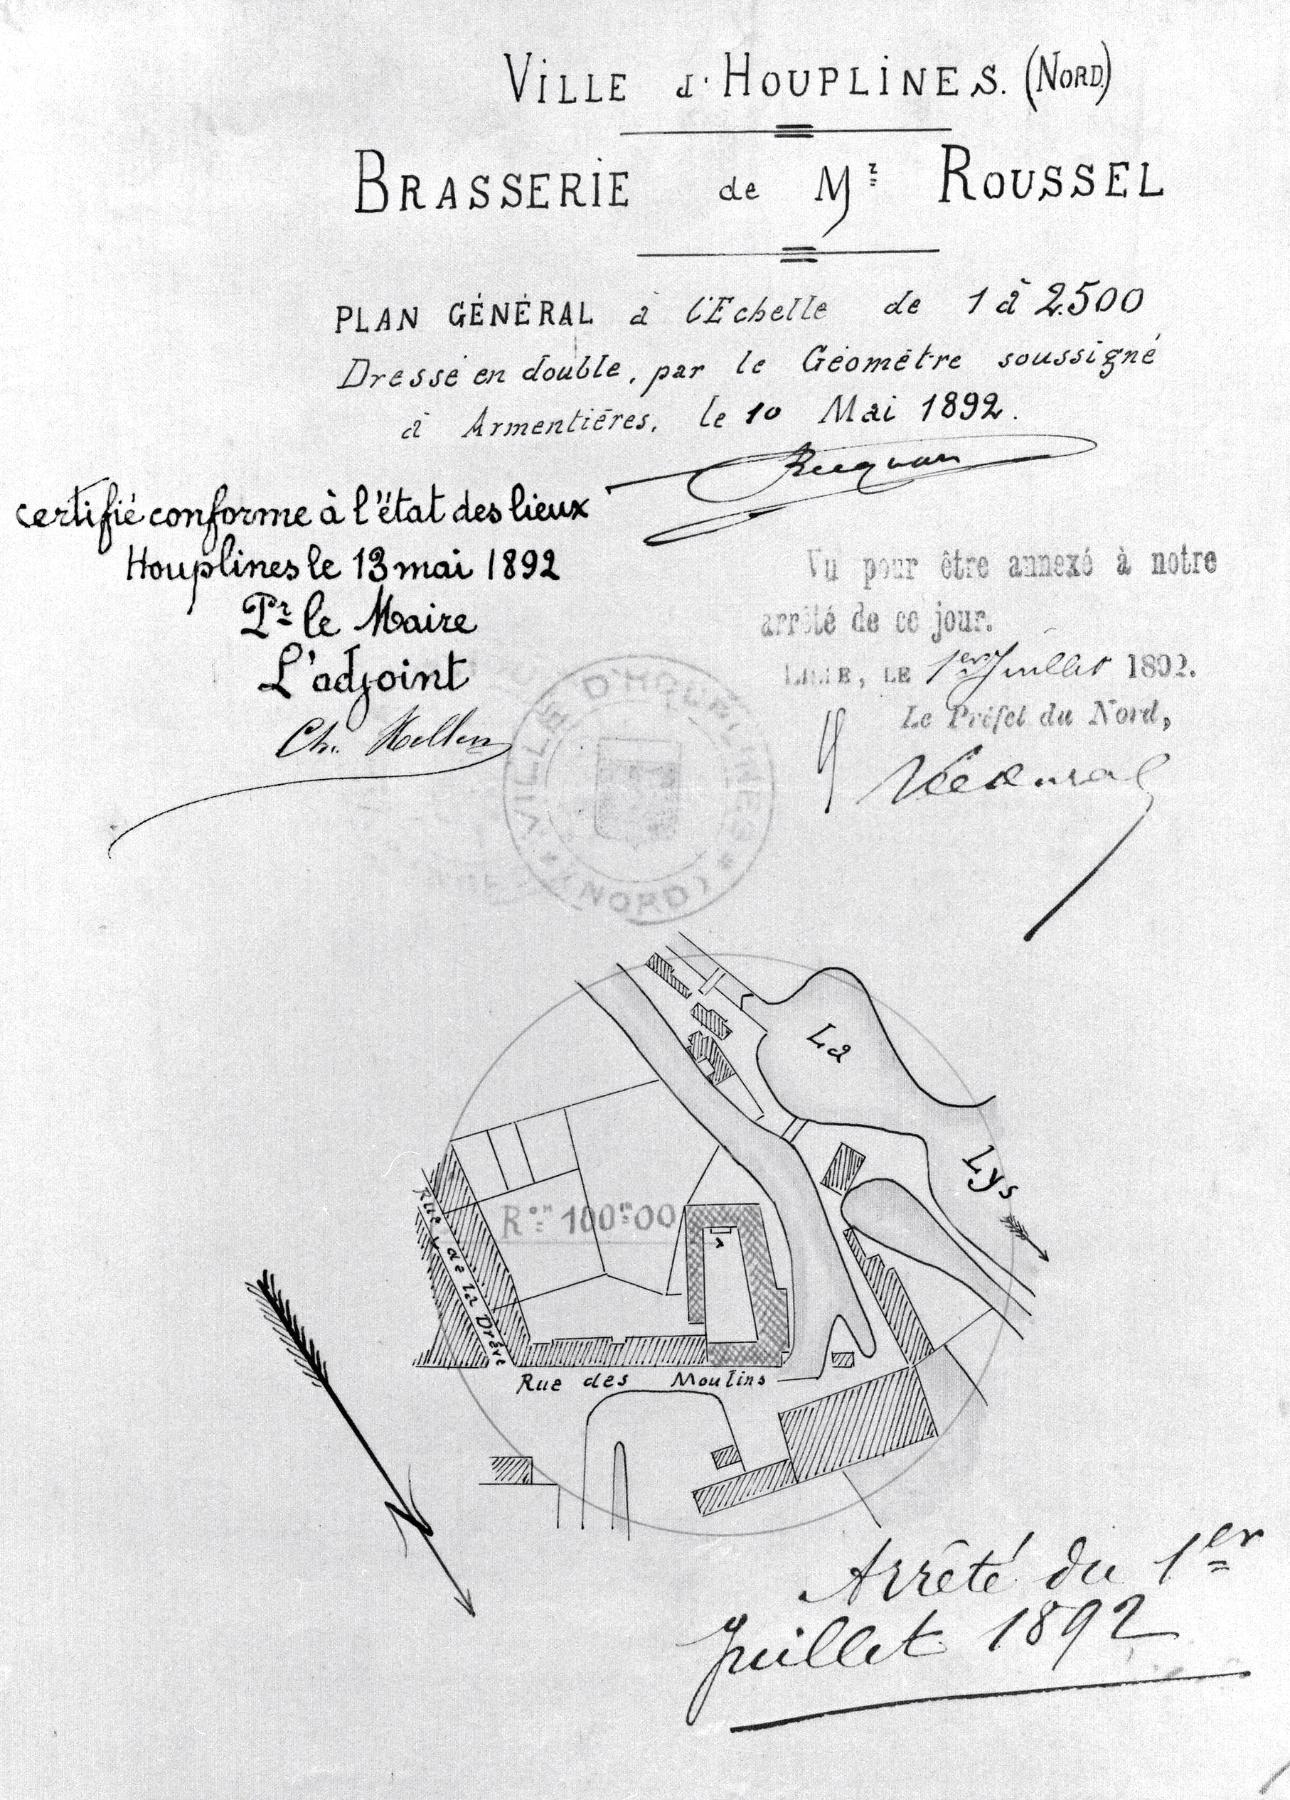 VILLE d'HOUPLINES. (NORD.)
BRASSERIE de Mr ROUSSEL
PLAN GÉNÉRAL à l'Echelle de 1 à 2500
Dressé en double, par le Géomètre soussigné
à Armentières, le 10 Mai 1892.
certifié conforme à l'état des lieux
Houplines le 13 mai 1892
Pr le Maire
L'adjoint
Ch.
Vu pour être annexé à notre
arrêté de ce jour.
LILLE, LE 1er Juillet 1892.
Le Préfet du Nord,
VILLE D'HOUPLINES
* (NORD) *
La
Lys
Ron = 100m00
1
Rue de la Drève
Rue des Moulins
Arrêté du 1er
Juillet 1892